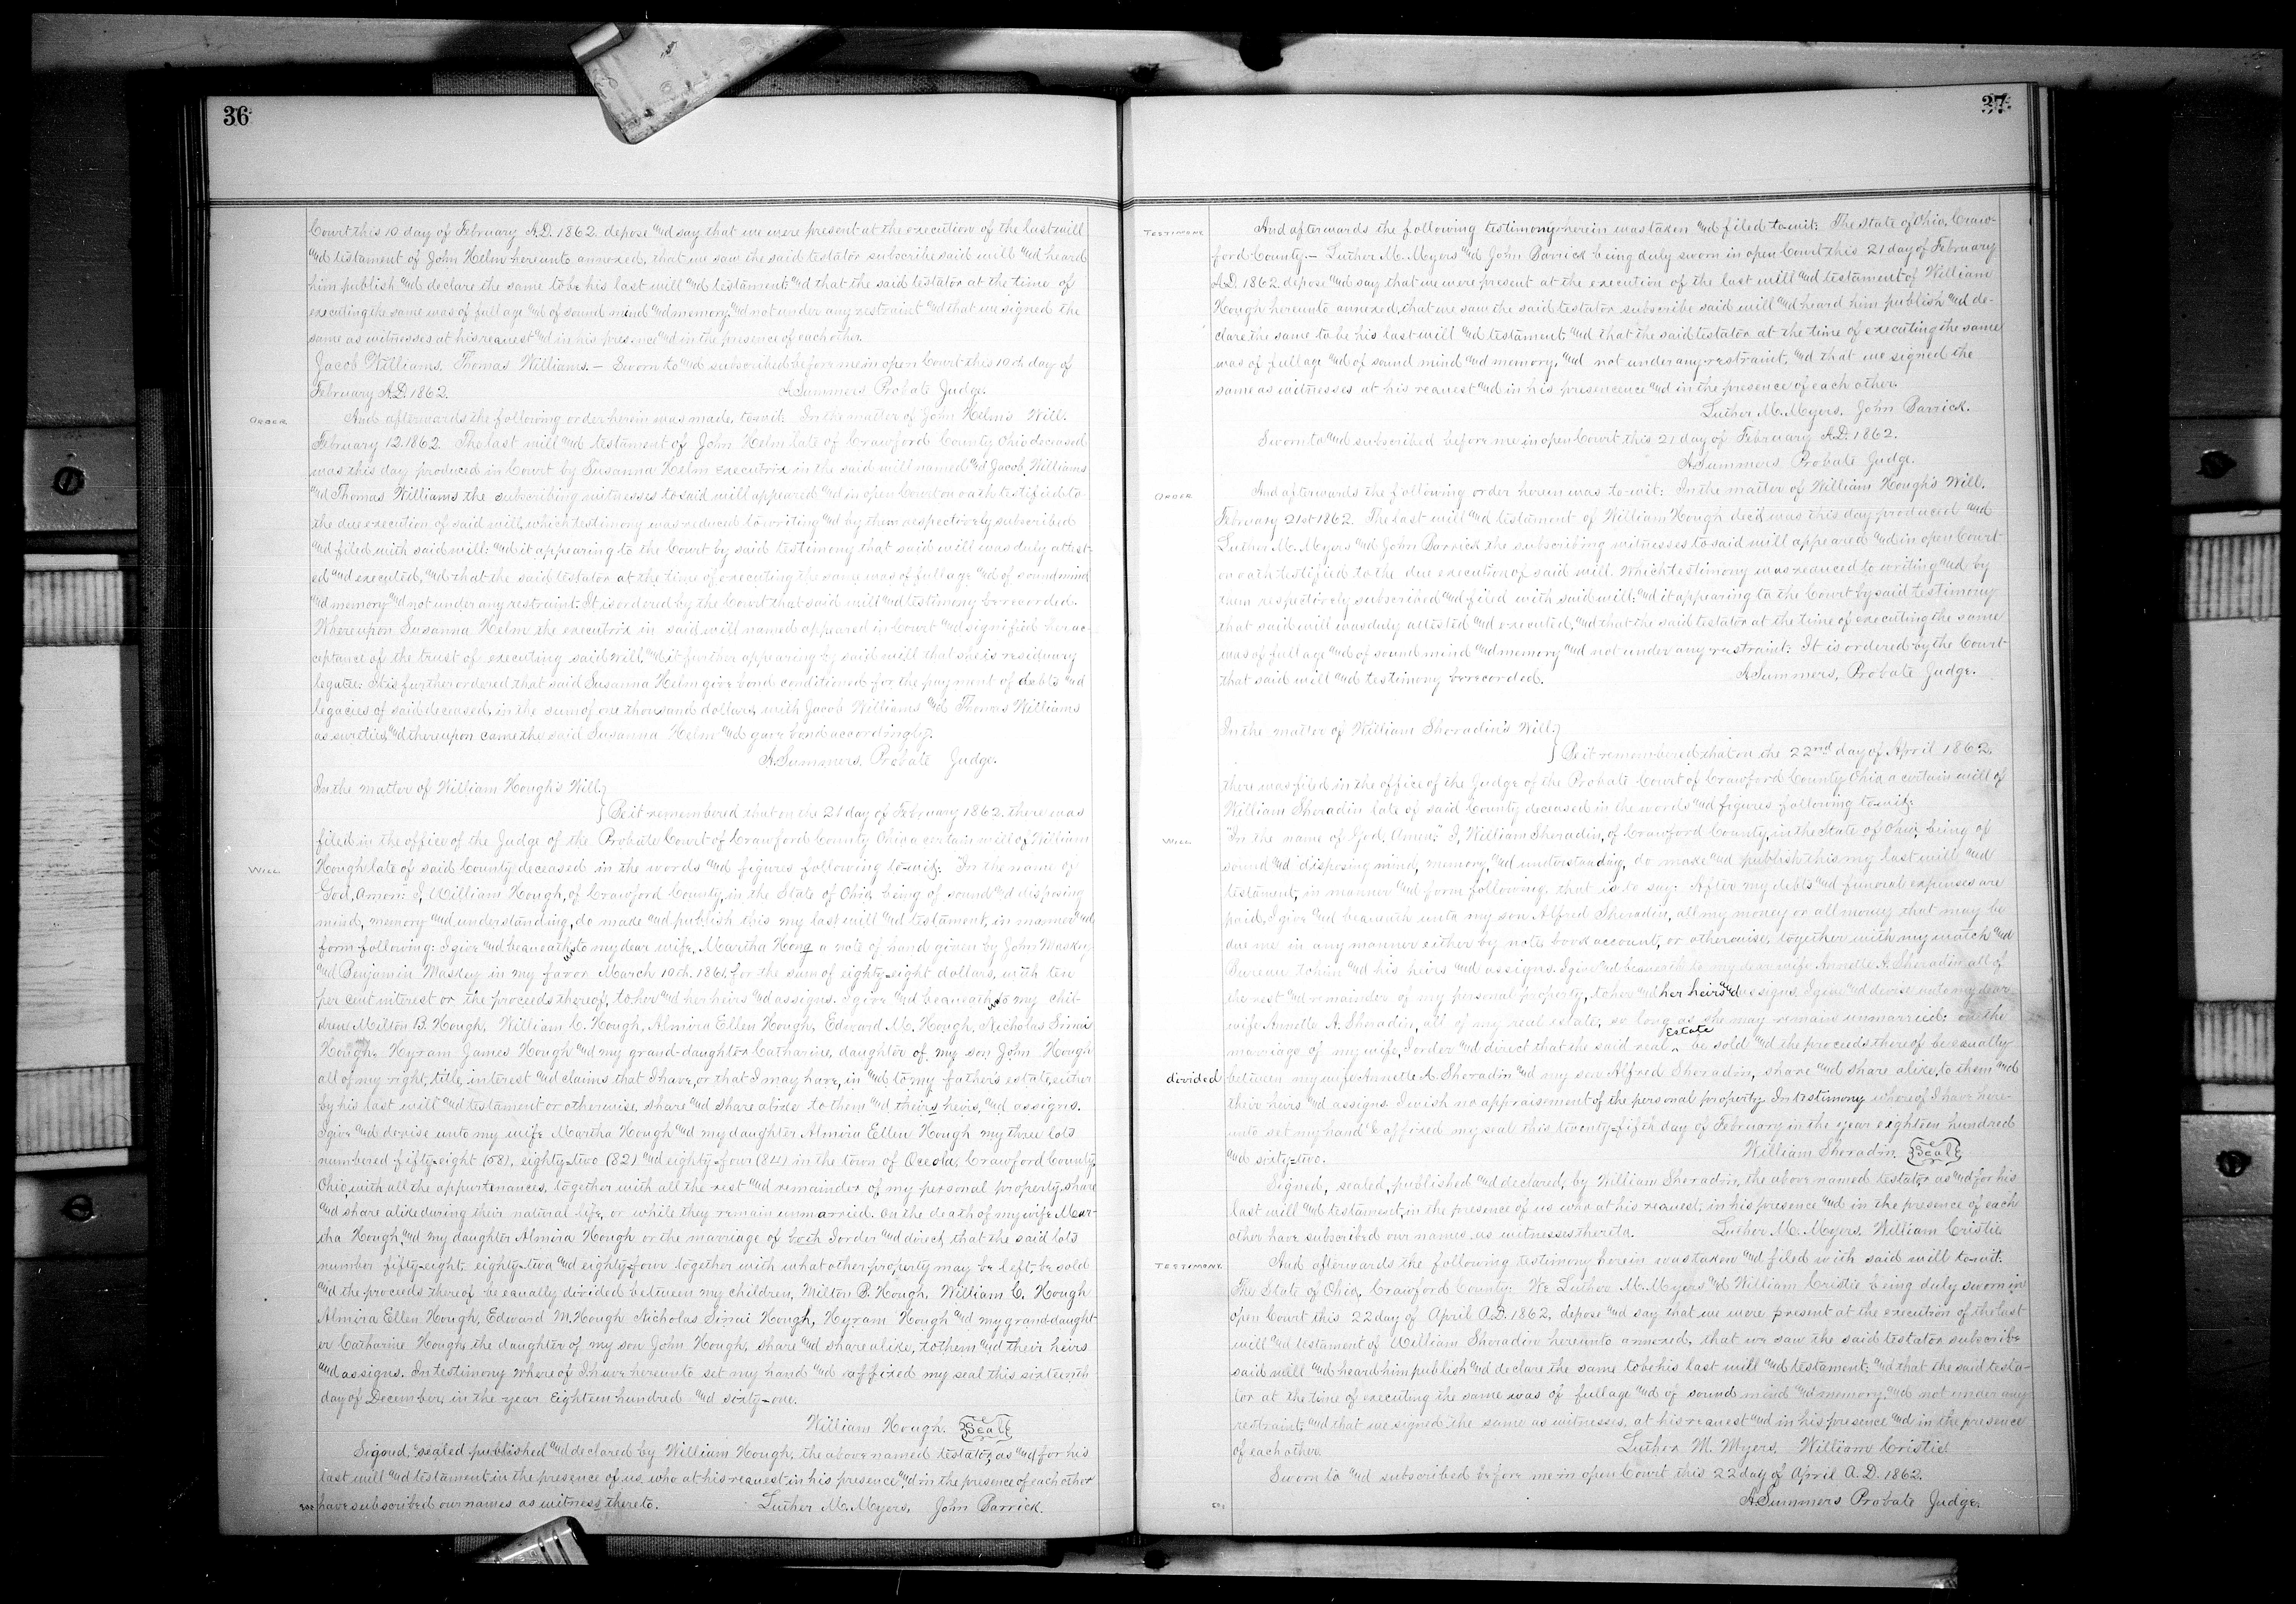 36
Court this 10 day of February A.D. 1862. depose and say that we were present at the execution of the last will
and testament of John Helm hereunto annexed, that we saw the said testator subscribe said will and heard
him publish and declare the same to be his last will and testament: and that the said testator at the time of
executing the same was of full age and of sound mind and memory, and not under any restraint and that we signed the
same as witnesses at his request and in his presence and in the presence of each other.
Jacob Williams. Thomas Williams. — Sworn to and subscribed before me in open Court this 10th day of
February A.D. 1862. A. Summers Probate Judge.
ORDER And afterwards the following order herein was made, to-wit: In the matter of John Helm's Will.
February 12. 1862. The last will and testament of John Helm late of Crawford County Ohio deceased
was this day produced in Court by Susanna Helm executrix in the said will named and Jacob Williams
and Thomas Williams the subscribing witnesses to said will appeared and in open Court on oath testified to
the due execution of said will, which testimony was reduced to writing and by them respectively subscribed
and filed with said will: and it appearing to the Court by said testimony that said will was duly attest-
ed and executed, and that the said testator at the time of executing the same was of full age and of sound mind
and memory and not under any restraint: It is ordered by the Court that said will and testimony be recorded.
Whereupon Susanna Helm the executrix in said will named appeared in Court and signified her ac-
ceptance of the trust of executing said will, and it further appearing by said will that she is residuary
legatee: It is further ordered that said Susanna Helm give bond conditioned for the payment of debts and
legacies of said deceased, in the sum of one thousand dollars, with Jacob Williams and Thomas Williams
as sureties, and thereupon came the said Susanna Helm and gave bond accordingly.
A. Summers. Probate Judge.
In the matter of William Hough's Will. }
Be it remembered that on the 21 day of February 1862. there was
filed in the office of the Judge of the Probate Court of Crawford County Ohio a certain will of William
WILL Hough late of said County deceased in the words and figures following to-wit: "In the name of
God, Amen: I, William Hough, of Crawford County, in the State of Ohio, being of sound and disposing
mind, memory and understanding, do make and publish this my last will and testament, in manner and
form following: I give and bequeath unto my dear wife, Martha Hong a note of hand given by John Maskey
and Benjamin Maskey in my favor March 19th. 1861. for the sum of eighty-eight dollars, with ten
per cent interest or the proceeds thereof, to her and her heirs and assigns. I give and bequeath unto my chil-
dren Milton B. Hough, William C. Hough, Almira Ellen Hough, Edward M. Hough, Nicholas Sinai
Hough, Hyram James Hough and my grand-daughter Catharine, daughter of my son John Hough
all of my right, title, interest and claims that I have, or that I may have, in and to my father's estate, either
by his last will and testament or otherwise, share and share alike to them and theirs heirs, and assigns.
I give and devise unto my wife Martha Hough and my daughter Almira Ellen Hough my three lots
numbered fifty-eight (58), eighty-two (82) and eighty-four (84) in the town of Oceola, Crawford County,
Ohio, with all the appurtenances, together with all the rest and remainder of my personal property, share
and share alike during their natural life, or while they remain unmarried. On the death of my wife Mar-
tha Hough, and my daughter Almira Hough or the marriage of both I order and direct, that the said lots
number fifty-eight, eighty-two and eighty-four together with what other property may be left, be sold
and the proceeds thereof be equally divided between my children, Milton B. Hough, William C. Hough
Almira Ellen Hough, Edward M. Hough Nicholas Sinai Hough, Hyram Hough and my grand-daught-
er Catharine Hough, the daughter of my son John Hough, share and share alike, to them and their heirs
and assigns. In testimony whereof I have hereunto set my hand and affixed my seal this sixteenth
day of December, in the year Eighteen hundred and sixty-one.
William Hough. Seal
Signed, sealed published and declared by William Hough, the above named testator, as and for his
last will and testament, in the presence of us, who at his request in his presence, and in the presence of each other
have subscribed our names as witness thereto. Luther M. Myers, John Barrick.
37
TESTIMONY And afterwards the following testimony herein was taken and filed to-wit: The State of Ohio, Craw-
ford County — Luther M. Myers and John Barrick being duly sworn in open Court this 21 day of February
A.D. 1862. depose and say that we were present at the execution of the last will and testament of William
Hough hereunto annexed, that we saw the said testator subscribe said will and heard him publish and de-
clare the same to be his last will and testament: and that the said testator at the time of executing the same
was of full age and of sound mind and memory, and not under any restraint, and that we signed the
same as witnesses at his request and in his presencence and in the presence of each other.
Luther M. Myers. John Barrick.
Sworn to and subscribed before me in open Court this 21 day of February A.D. 1862.
A. Summers Probate Judge.
ORDER And afterwards the following order herein was to-wit: In the matter of William Hough's Will.
February 21st 1862. The last will and testament of William Hough decd. was this day produced and
Luther M. Myers and John Barrick the subscribing witnesses to said will appeared and in open Court
on oath testified to the due execution of said will. Which testimony was reduced to writing and by
them respectively subscribed and filed with said will: and it appearing to the Court by said testimony
that said will was duly attested and executed, and that the said testator at the time of executing the same
was of full age and of sound mind and memory and not under any restraint: It is ordered by the Court
that said will and testimony be recorded. A. Summers, Probate Judge.
In the matter of William Sheradin's Will. }
Be it remembered that on the 22nd day of April 1862.
there was filed in the office of the Judge of the Probate Court of Crawford County Ohio a certain will of
William Sheradin late of said County deceased in the words and figures following to-wit:
WILL "In the name of God, Amen:" I, William Sheradin, of Crawford County, in the State of Ohio, being of
sound and disposing mind, memory, and understanding, do make and publish this my last will and
testament, in manner and form following: that is to say: After my debts and funeral expenses are
paid, I give and bequeath unto my son Alfred Sheradin, all my money or all money that may be
due me in any manner either by note book account, or otherwise, together with my watch and
Bureau to him and his heirs and assigns. I give and bequeath to my dear wife Annette A. Sheradin all of
the rest and remainder of my personal property, to her and her heirs and assigns. I give and devise unto my dear
wife Annette A. Sheradin, all of my real estate; so long as she may remain unmarried: on the
marriage of my wife, I order and direct that the said real Estate be sold and the proceeds thereof be equally
divided between my wife Annette A. Sheradin and my son Alfred Sheradin, share and share alike, to them and
their heirs and assigns. I wish no appraisement of the personal property. In testimony whereof I have here-
unto set my hand & affixed my seal this twenty-fifth day of February in the year eighteen hundred
and sixty-two. William Sheradin. Seal
Signed, sealed, published and declared, by William Sheradin, the above named testator as and for his
last will and testament, in the presence of us who at his request, in his presence and in the presence of each
other have subscribed our names, as witnesses thereto. Luther M. Myers, William Cristie.
TESTIMONY. And afterwards the following testimony herein was taken and filed with said will to-wit:
The State of Ohio, Crawford County: We Luther M. Myers and William Cristie being duly sworn in
open Court this 22 day of April A.D. 1862, depose and say that we were present at the execution of the last
will and testament of William Sheradin hereunto annexed, that we saw the said testator subscribe
said will and heard him publish and declare the same to be his last will and testament: and that the said testa-
tor at the time of executing the same was of full age and of sound mind and memory, and not under any
restraint: and that we signed the same as witnesses, at his request and in his presence and in the presence
of each other. Luther M. Myers, William Cristie
Sworn to and subscribed before me in open Court this 22 day of April A.D. 1862.
A. Summers Probate Judge.